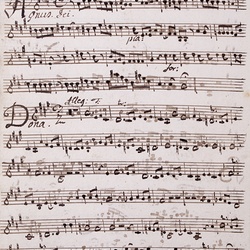 Agnus Dei.
pia
for.
Alleg:
Dona.